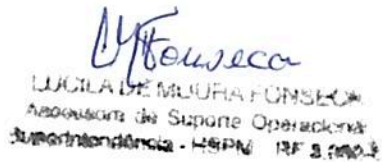 MFonseca
LUCILA DE MOURA FONSECA
Assessora de Suporte Operacional
Superintendência - HSPM RF